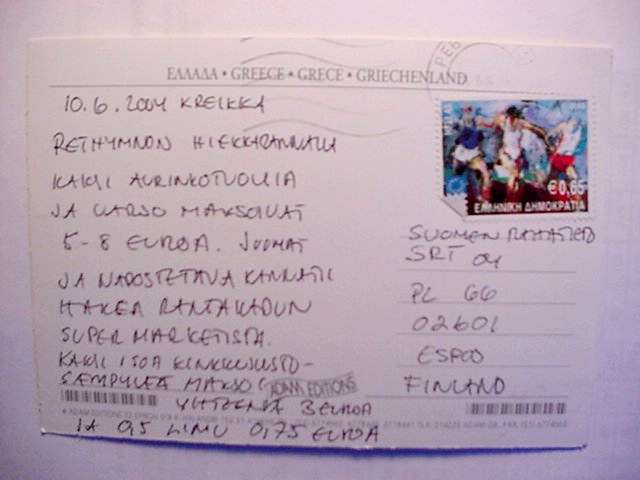 ΕΛΛΑΔΑ • GREECE • GRECE • GRIECHENLAND
10.6.2004 KREIKKA
RETHYMNON HIEKKARANNALLA
KAKSI AURINKOTUOLIA
JA VARJO MAKSOIVAT
5-8 EUROA. JUOMAT
JA NAPOSTELTAVA KANNATTI
HAKEA RANTAKADUN
SUPERMARKETISTA.
KAKSI ISOA KINKKUJUUSTO-
SÄMPYLÄÄ MAKSOI
YHTEENSÄ 3 EUROA
JA 0,5 LIMU 0,75 EUROA
€0,65
ΕΛΛΗΝΙΚΗ ΔΗΜΟΚΡΑΤΙΑ
SUOMEN
SRT 04
PL 66
02601
ESPOO
FINLAND
ADAM EDITIONS